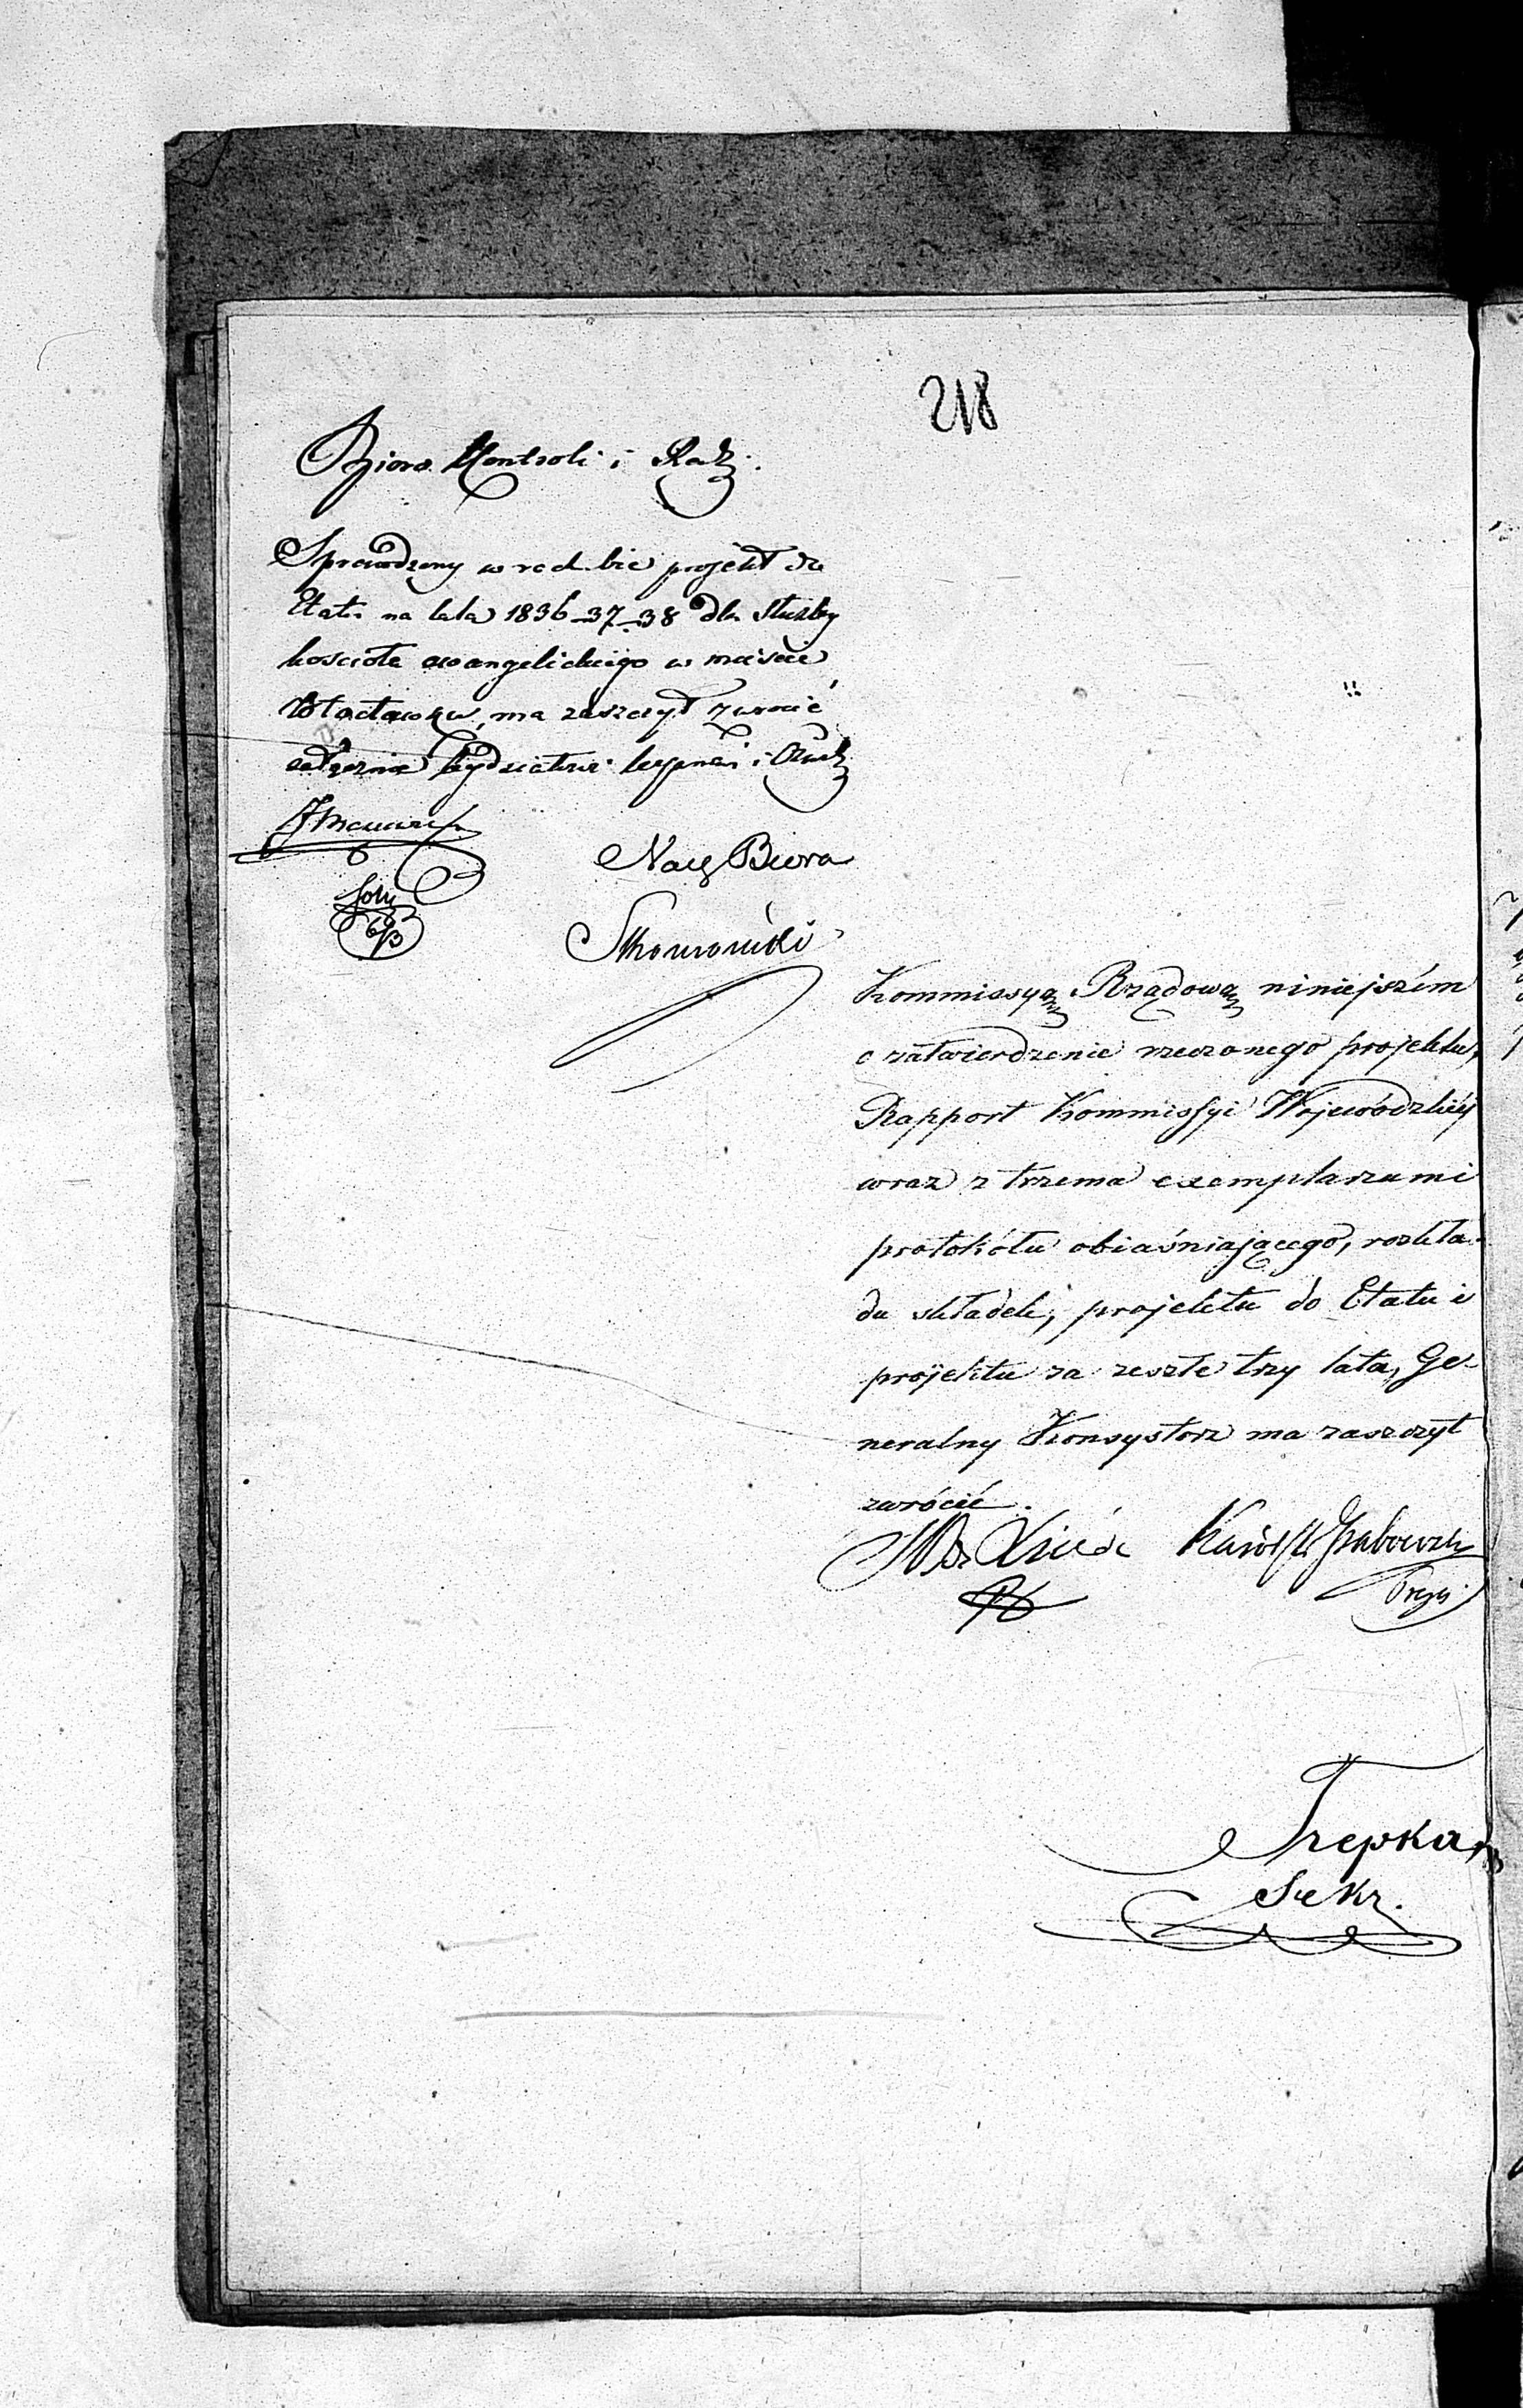 218
Biuro Kontroli i Rach.
Sprawdzony w rachbie projekt do
Etatu na lata 1836-37-38 dla Służby
kościoła ewangelickiego w mieście
Włocławku, ma zaszczyt zwrócić
załącznie Wydziałowi i
Nacz Biura
Skowroński
Kommissyą Rządową niniejszém
o zatwierdzenie rzeczonego projektu,
Rapport Kommissyi Wojewódzkiéj
wraz z trzema exemplarzami
protokółu obiaśniającego, rozkła-
du składek, projektu do Etatu i
projektu za zeszłe trzy lata, Ge-
neralny Konsystorz ma zaszczyt
zwrócić.
Karól Grabowski
Prezes
Trepka
Sekr.